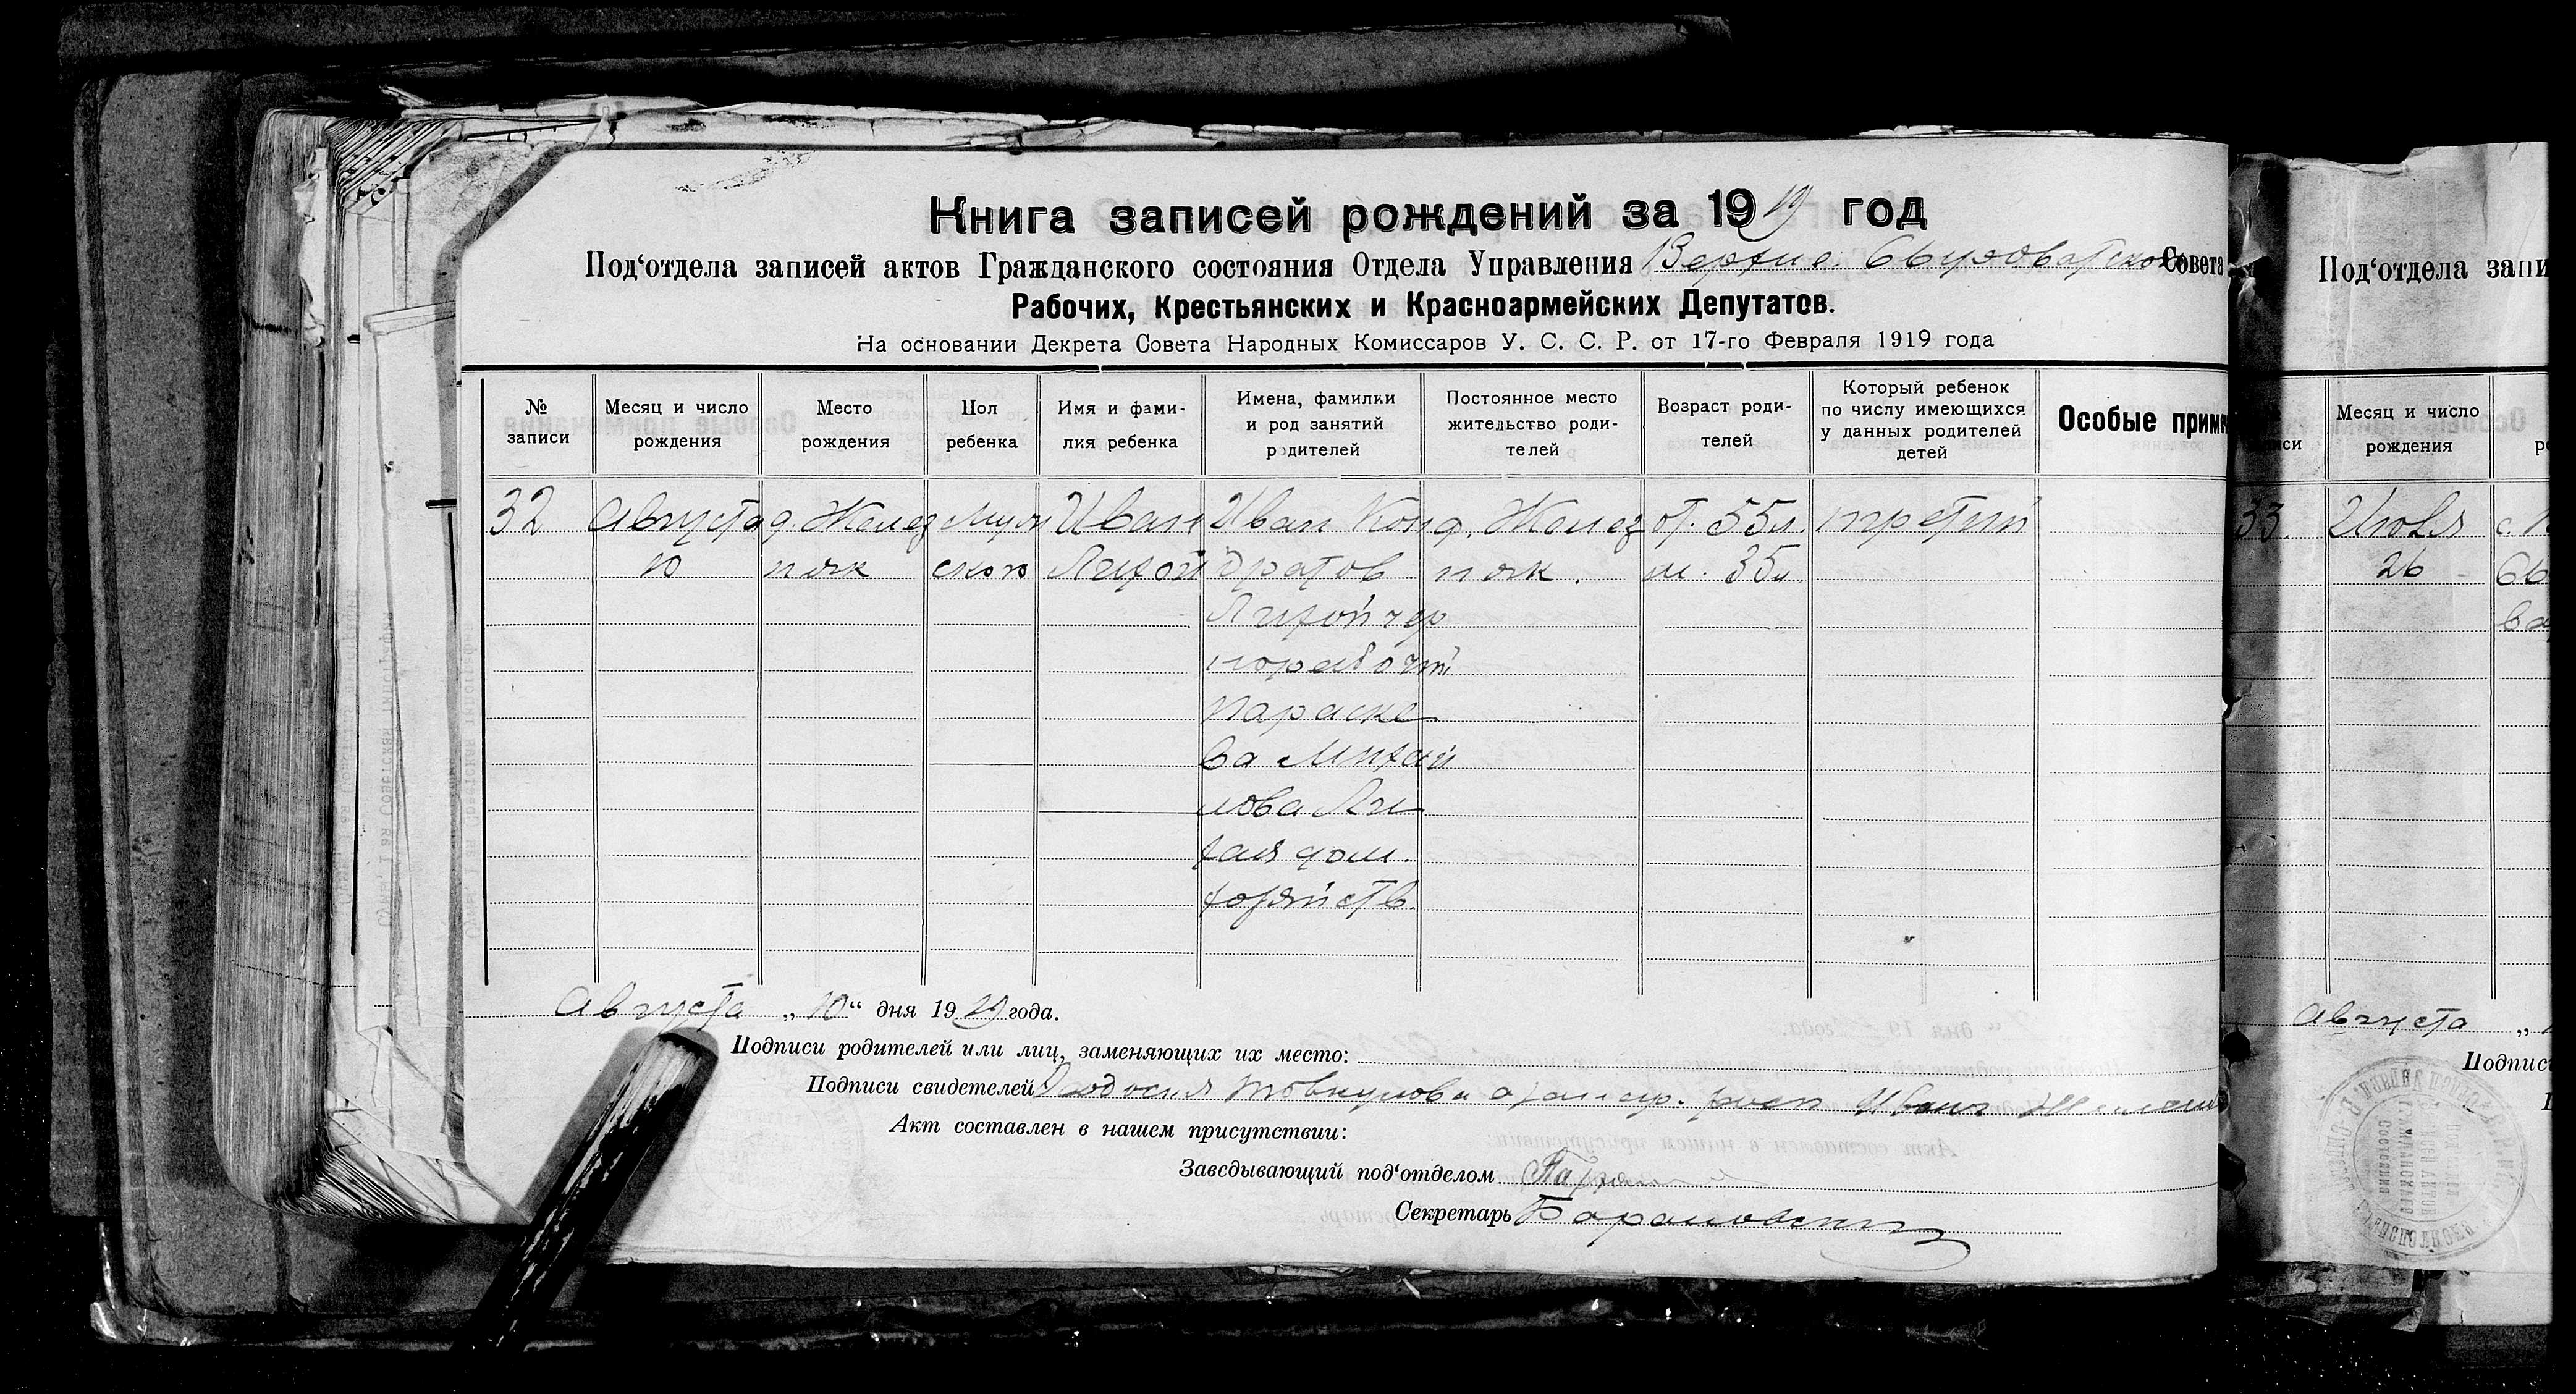 Книга записей рождений за 1919 год
Под‘отдела записей актов Гражданского состояния Отдела Управления Верхне Совета
Рабочих, Крестьянских и Красноармейских Депутатов.
На основании Декрета Совета Народных Комиссаров У. С. С. Р. от 17-го Февраля 1919 года
№ записи
Месяц и число рождения
Место рождения
Пол ребенка
Имя и фами-
лия ребенка
Имена, фамилии
и род занятий
родителей
Постоянное место
жительство роди-
телей
Возраст роди-
телей
Который ребенок
по числу имеющихся
у данных родителей
детей
Особые приме
32 Августа д. Желез муж Иван Иван Кон д. Желез от. 55 л. третий
10 няк ского Лихой дратов няк. м. 35 л
Лихой чер
норабочий
Параске
ва Михай
лова Ли
хая дом.
хозяйств.
Августа „10“ дня 1919 года.
Подписи родителей или лиц, заменяющих их место:
Подписи свидетелей Иван
Акт составлен в нашем присутствии:
Заведывающий под‘отделом
Секретарь Барановский
Под‘отдела запи
Месяц и число
рождения
33. Июля с.
26
Августа
Подпис